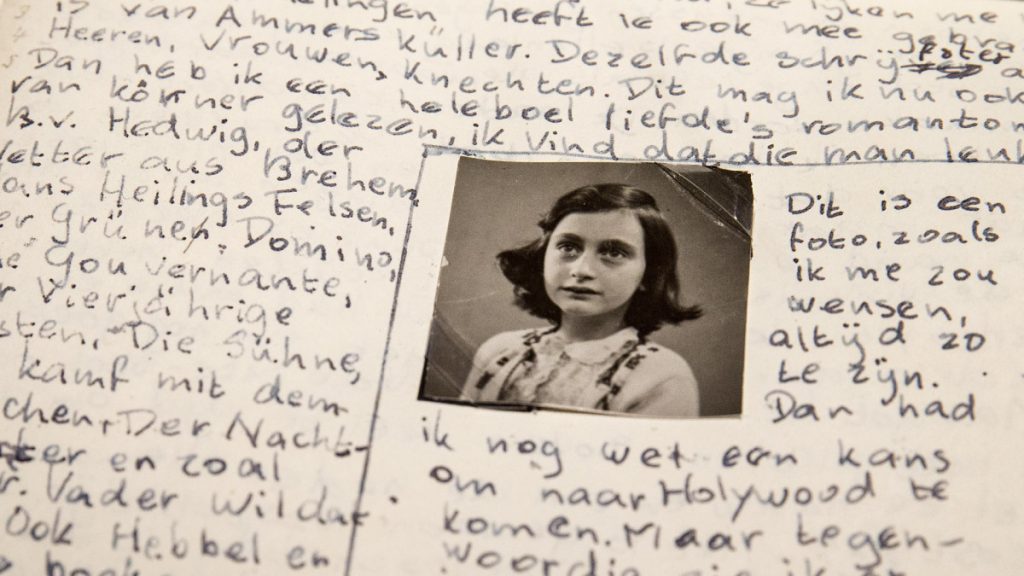 is van Ammers Küller. Dezelfde schrijfster
Heeren, Vrouwen, Knechten. Dit mag ik nu ook
Dan heb ik een heleboel liefde's romanton
van körner gelezen, ik vind dat die man leuk
B.v. Hedwig, der
Vetter aus Brehem,
Hans Heilings Felsen,
Der Grünen, Domino,
Gouvernante,
Vierjährige
Die Sühne,
kamf mit dem
Der Nacht-
en zoal
Vader Wildat
Ook Hebbel en
Dit is een
foto, zoals
ik me zou
wensen,
altijd zo
te zijn.
Dan had
ik nog wet een kans
om naar Holywood te
komen. Maar tegen-
woordig